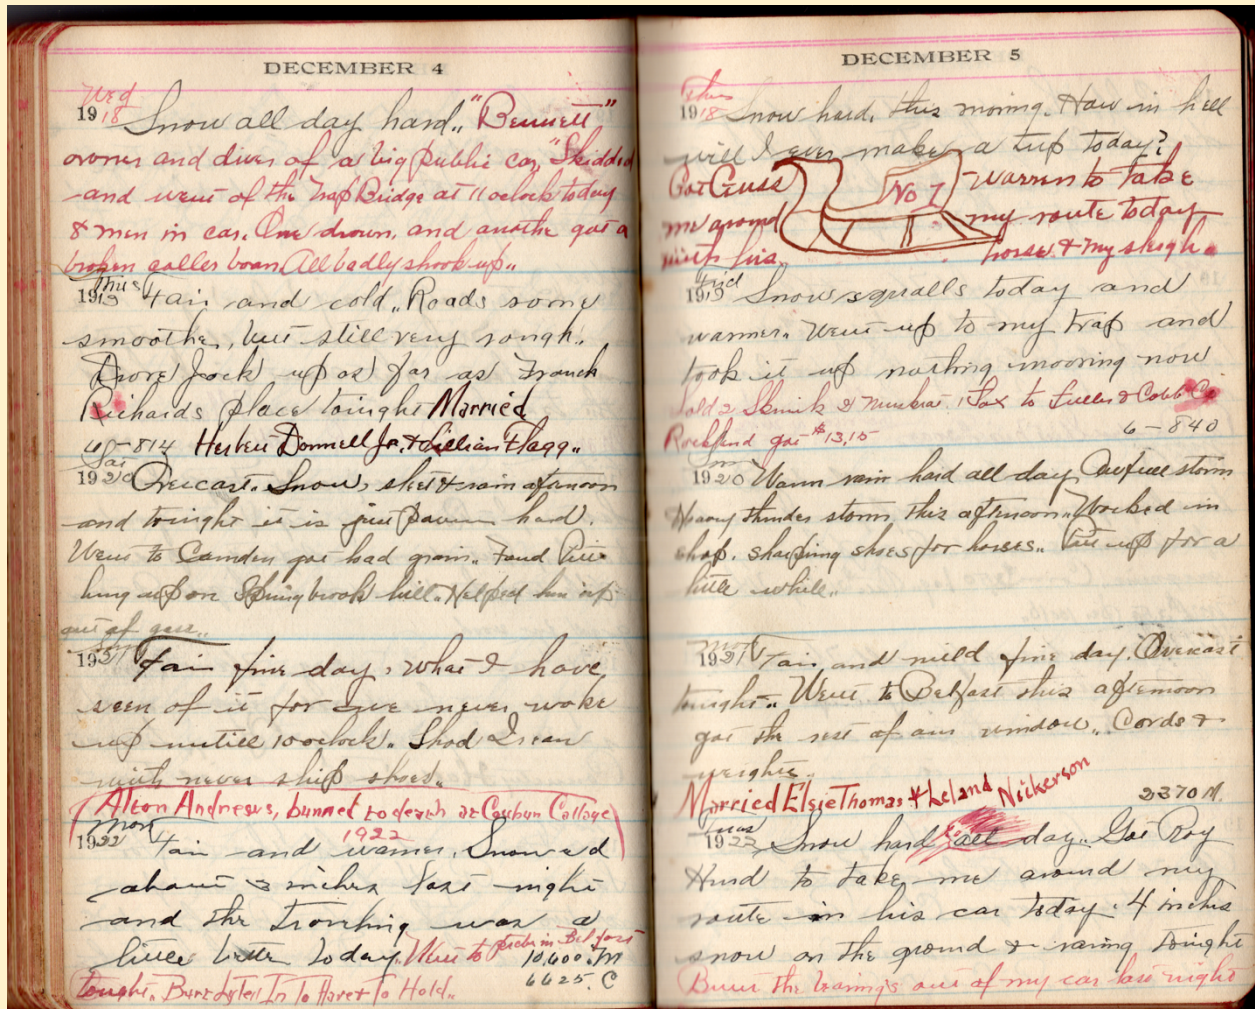 DECEMBER 4
Wed
1918 Snow all day hard,, "Bennett,"
owner and diver of a big public car, "Skidded
and went of the Trap Bridge at 11 oclock today
8 men in car. One drown, and anothe got a
broken coller boan. All badly shook up,,
Thurs
1919 Fair and cold,, Roads some
smoothe, but still very rough,,
Drove Jack up as far as
Richards place tonight Married
60-814 Herbert Donnell Jr. & Lillian Flagg,,
Sat
1920 Overcast,, Snow, sleet & rain afternoon
and tonight it is just hard.
Went to Camden got load grain. Found
hung up on Spring brook hill,, Helped him up
out of gass,,
Sun
1921 Fair fine day, what I have
seen of it for we never woke
up untill 10 oclock,, Shod
with never slip shoes,,
Alton Andrews, burned to death at Coyburn Collage
1922
Mon
1922 Fair and warmer, Snowed
about 3 inches last night
and the was a
little better today. Went to in Belfast
10,600. M
6625. C
Tonight,, Burt Lytell In To Have & To Hold,,
DECEMBER 5
Thurs
1918 Snow hard, this moring. How in hell
will I ever make a trip today?
Got Guss Warren to take
No 1
me around my route today
with his,, horse & my sleigh.
Frid
1919 Snow squalls today and
warmer. Went up to my trap and
took it up nothing mooving now
Sold 2 Skunk 2 Muskrat 1 Fox to Fuller & Cobb Co
Rockland got $13,15 6-840
Sun
1920 Warm rain hard all day. Awfull storm.
Heavy thunder storm this afternoon. Worked in
shop. sharping shoes for horses,, up for a
little while,,
Mon
1921 Fair, and mild fine day. Overcast
tonight,, Went to Belfast this afternoon
got the rest of our window,, Cords &
weights,,
Married Elsie Thomas & Leland Nickerson
2370 M.
Tues
1922 Snow hard all day,, Got Roy
Hurd to take me around my
route in his car today. 4 inches
snow on the ground & raing tonight
Burnt the barings out of my car last night